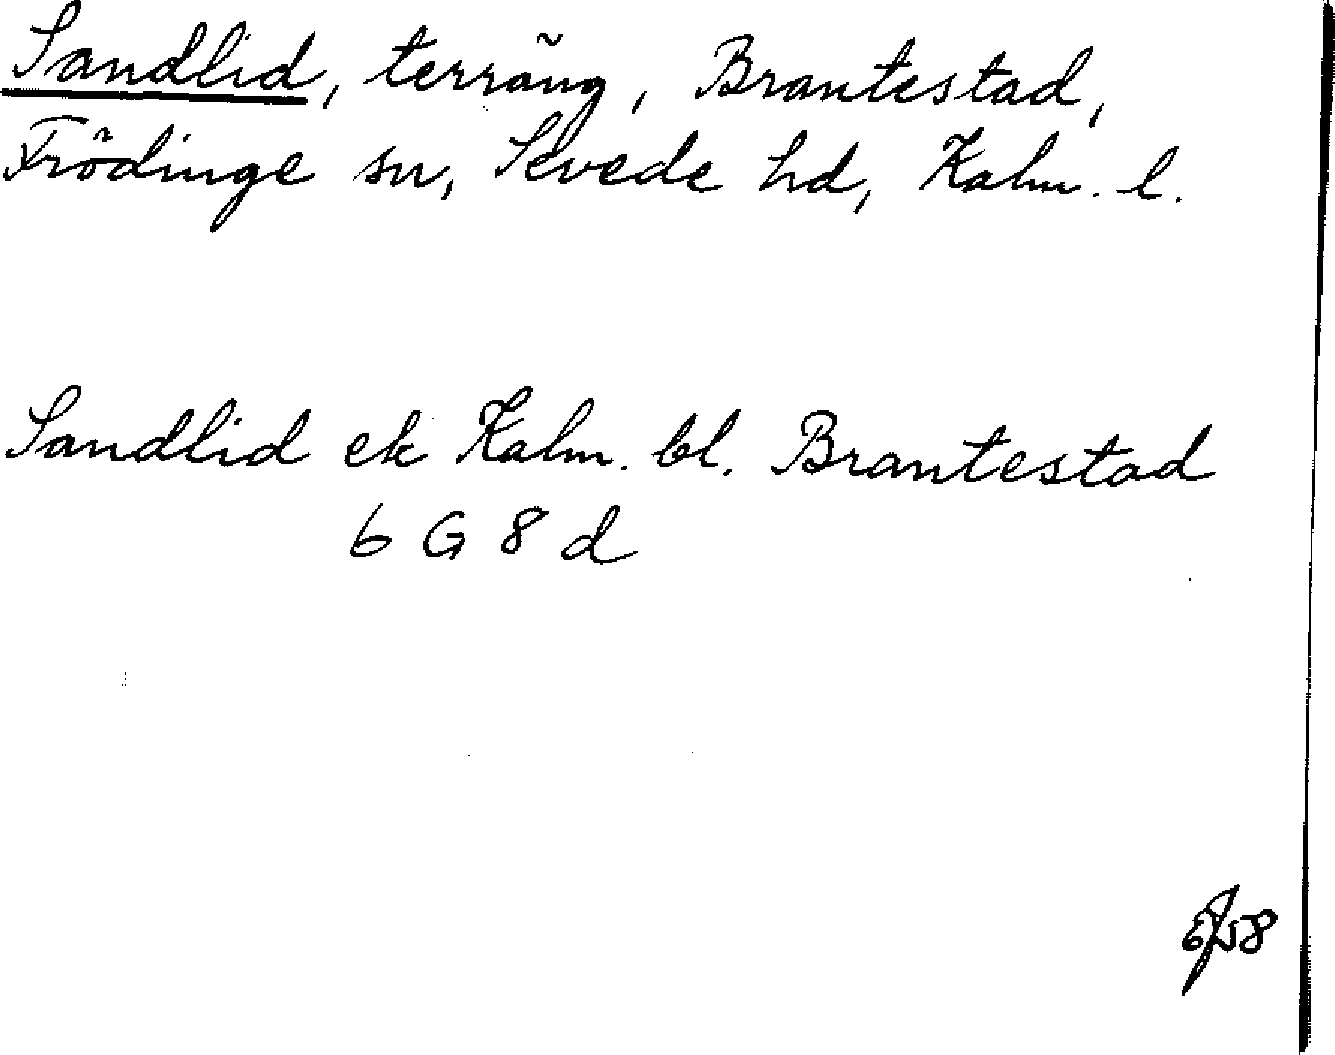 Sandlid, terräng, Brantestad,
Frödinge sn, Sevede hd, Kalm. l.
Sandlid ek Kalm. bl. Brantestad
6 G 8 d